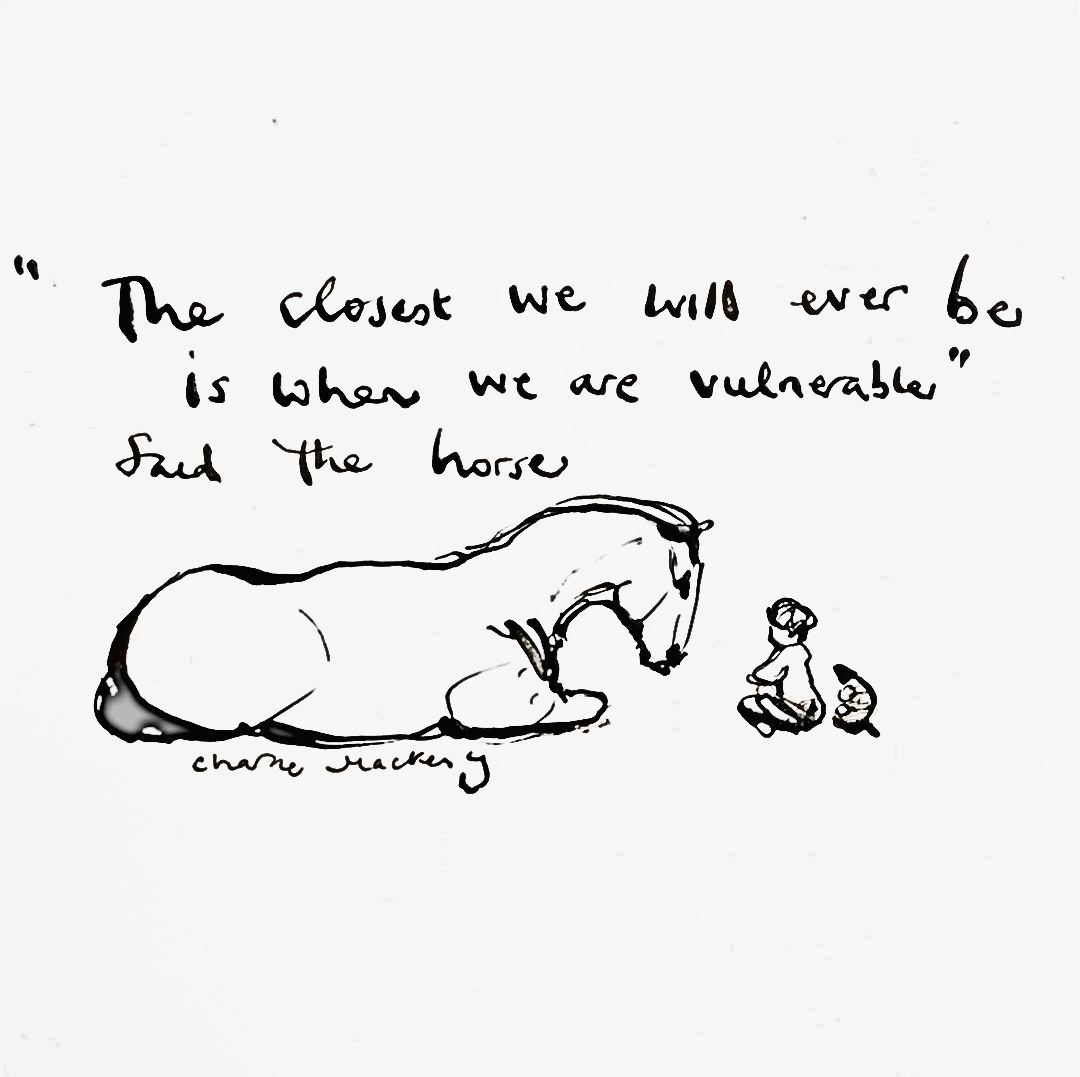 " The closest we will ever be
is when we are vulnerable"
Said the horse
charlie mackesy